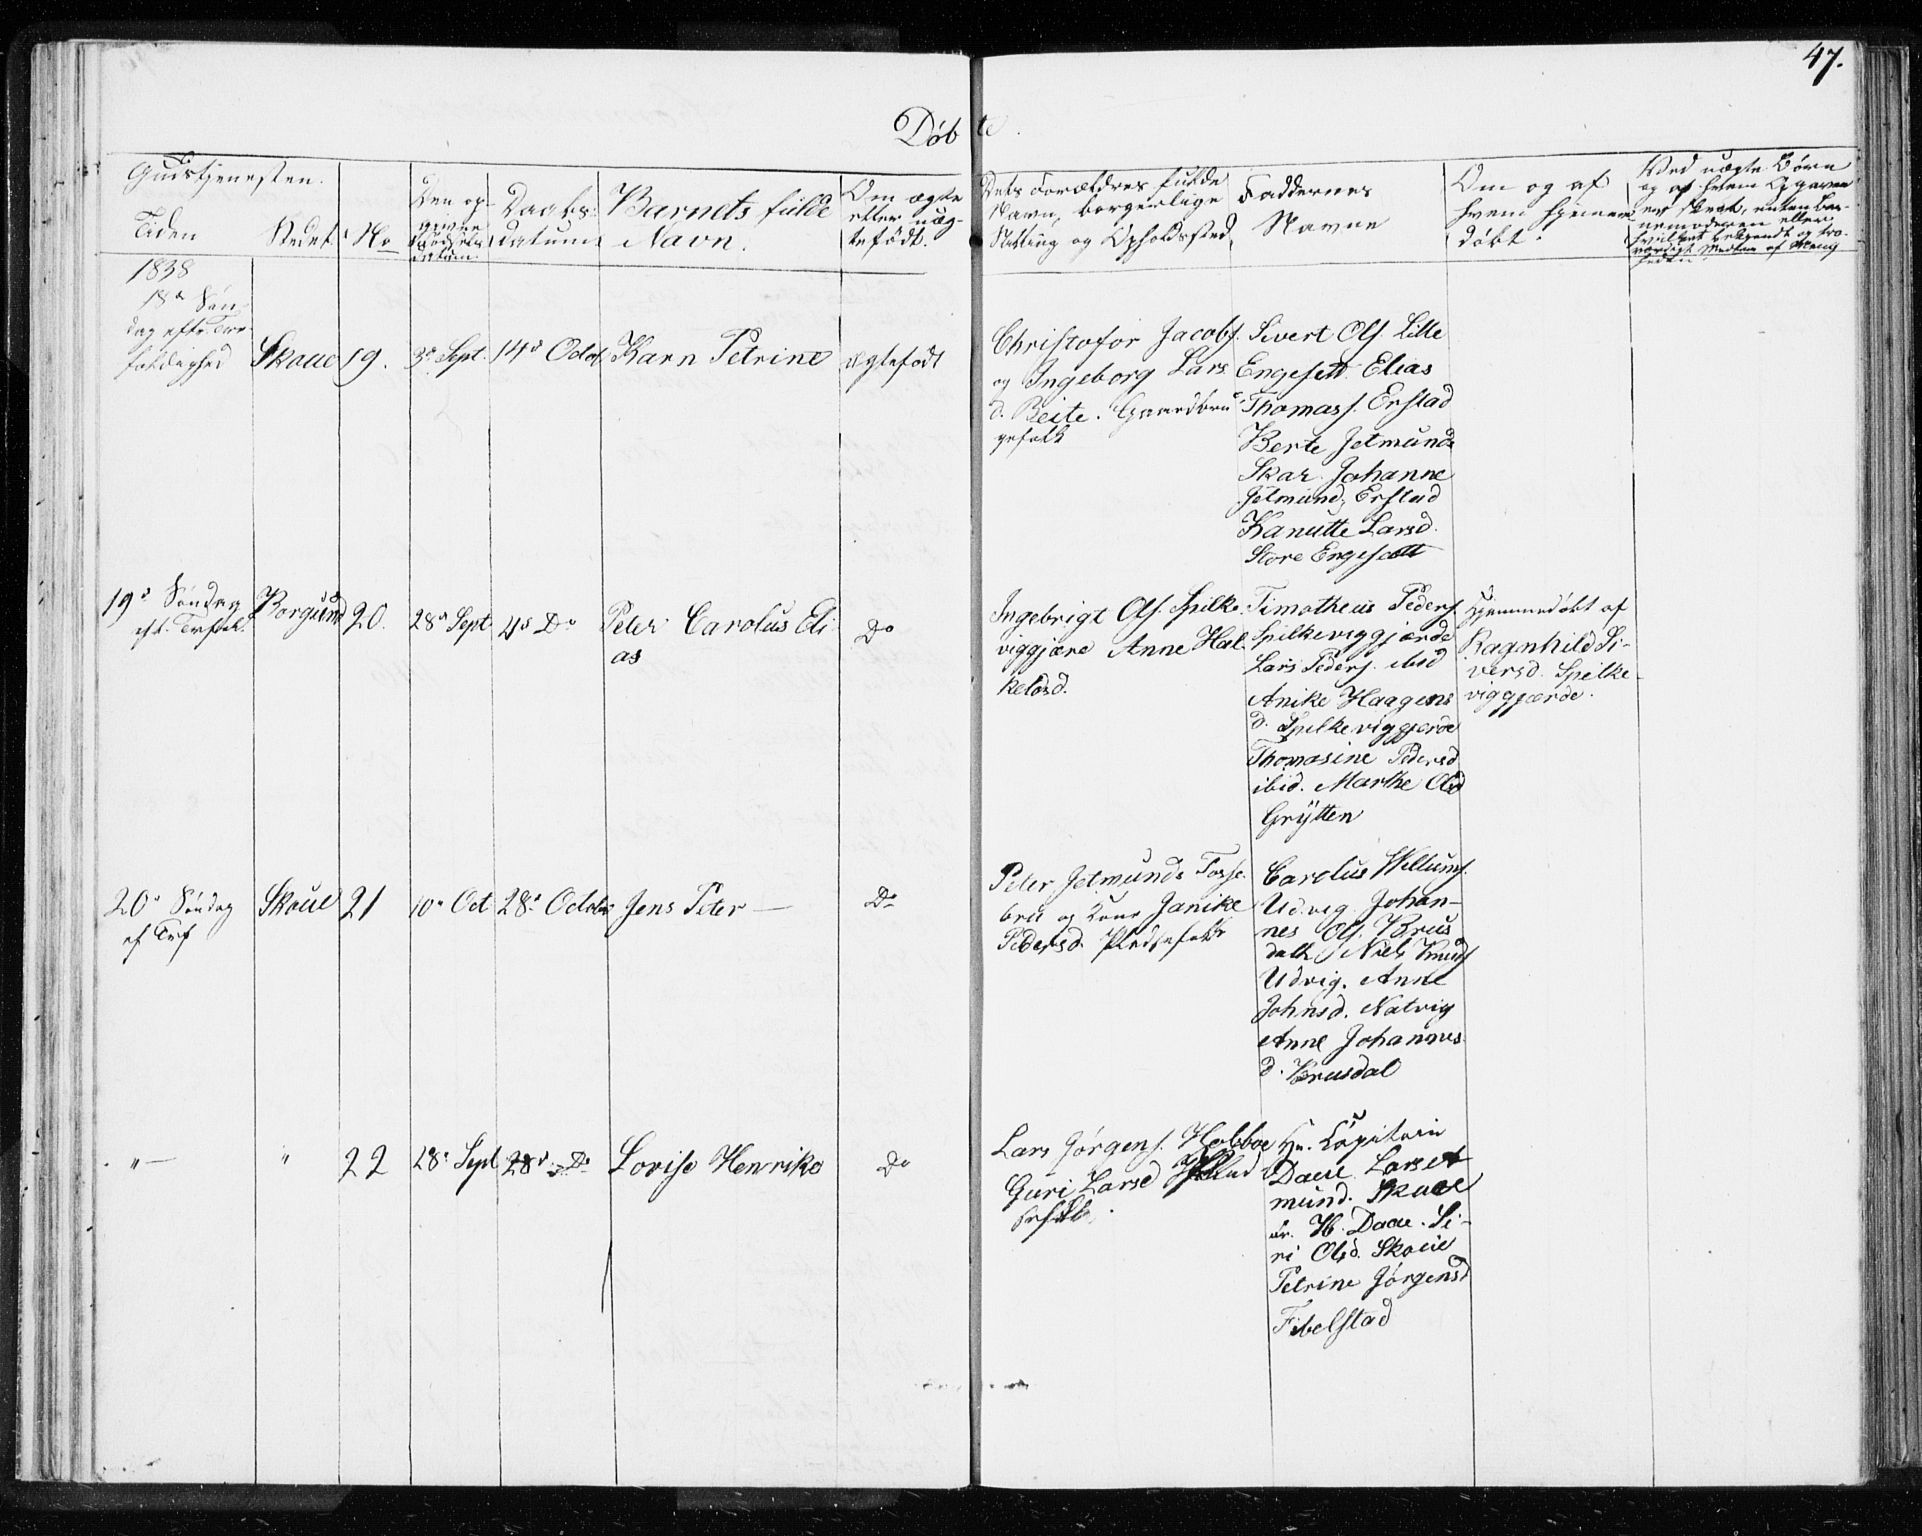 47.
Døbte.
Gudstjenesten.
Tiden
Stedet
No
Den op-
givne
Fødsels-
datum.
Daabs-
datum
Barnets fulde
Navn.
Om ægte
eller uæg-
tefødt.
Dets Forældres fulde
Navn, borgerlige
Stilling og Opholdssted
Faddernes
Navne
Om og af
hvem hjemme
døbt.
Ved uægte Børn
og af hvem Opgaven
er skeet, enten Bar-
nemoderen eller
hvilket bekjendt og tro-
værdigt Medlem af Menig
heden.
1838
18de Søn-
dag efter Tre-
foldighed
Skoue
19.
3d Sept.
14d Octob.
Karn Petrine
ægtefødt
Christofor Jacobs.
og Ingeborg Lars
d. Beite. Gaardbru
gefolk
Sivert Ols. Lille
Engesett. Elias
Thomass. Erstad
Berte Jetmunds
Skar. Johanne
Jetmunds. Erstad
Kanutte Larsd.
Store Engesætt
19d Søndag
eft. Trefol.
Borgund
20.
28d Sept
4d Do
Peter Carolus Eli-
as
Do
Ingebrigt Ols. Spilke-
viggjære Anne Hal-
kelosd.
Timotheus Peders.
Spilkeviggjærde
Lars Peders. ibid
Anike Haagens
d. Spilkeviggjerde
Thomasine Pedersd
ibid. Marthe Olsd
Grÿtten
Hjemmedøbt af
Ragnhild Si-
versd. Spilke-
viggjærde.
20d Søndag
ef Tref
Skoue
21
10d Oct
28d Octob.
Jens Peter —
Do
Peter Jetmunds Fosse-
bru og Kone Janike
Pedersd. Pladsefolk
Carolus Willums.
Udvig Johan-
nes Ols. Brus
dal. Niels Knuds
Udvig. Anne
Johnsd. Natvig
Anne Johannes
d. Brusdal
"—
"
22
28d Sept
28d Do
Lovise Henrike
Do
Lars Jørgens. Habboe
Guri Larsd Plad
sefolk.
Hr. Capitain
Daae Lars A
mund. Skoue
Fr. H. Daae. Si-
ri Olsd. Skoue
Petrine Jørgensd
Fibelstad